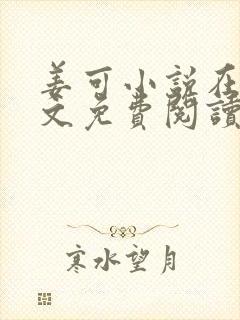 姜可小说在
文免費閱讀
寒水望月